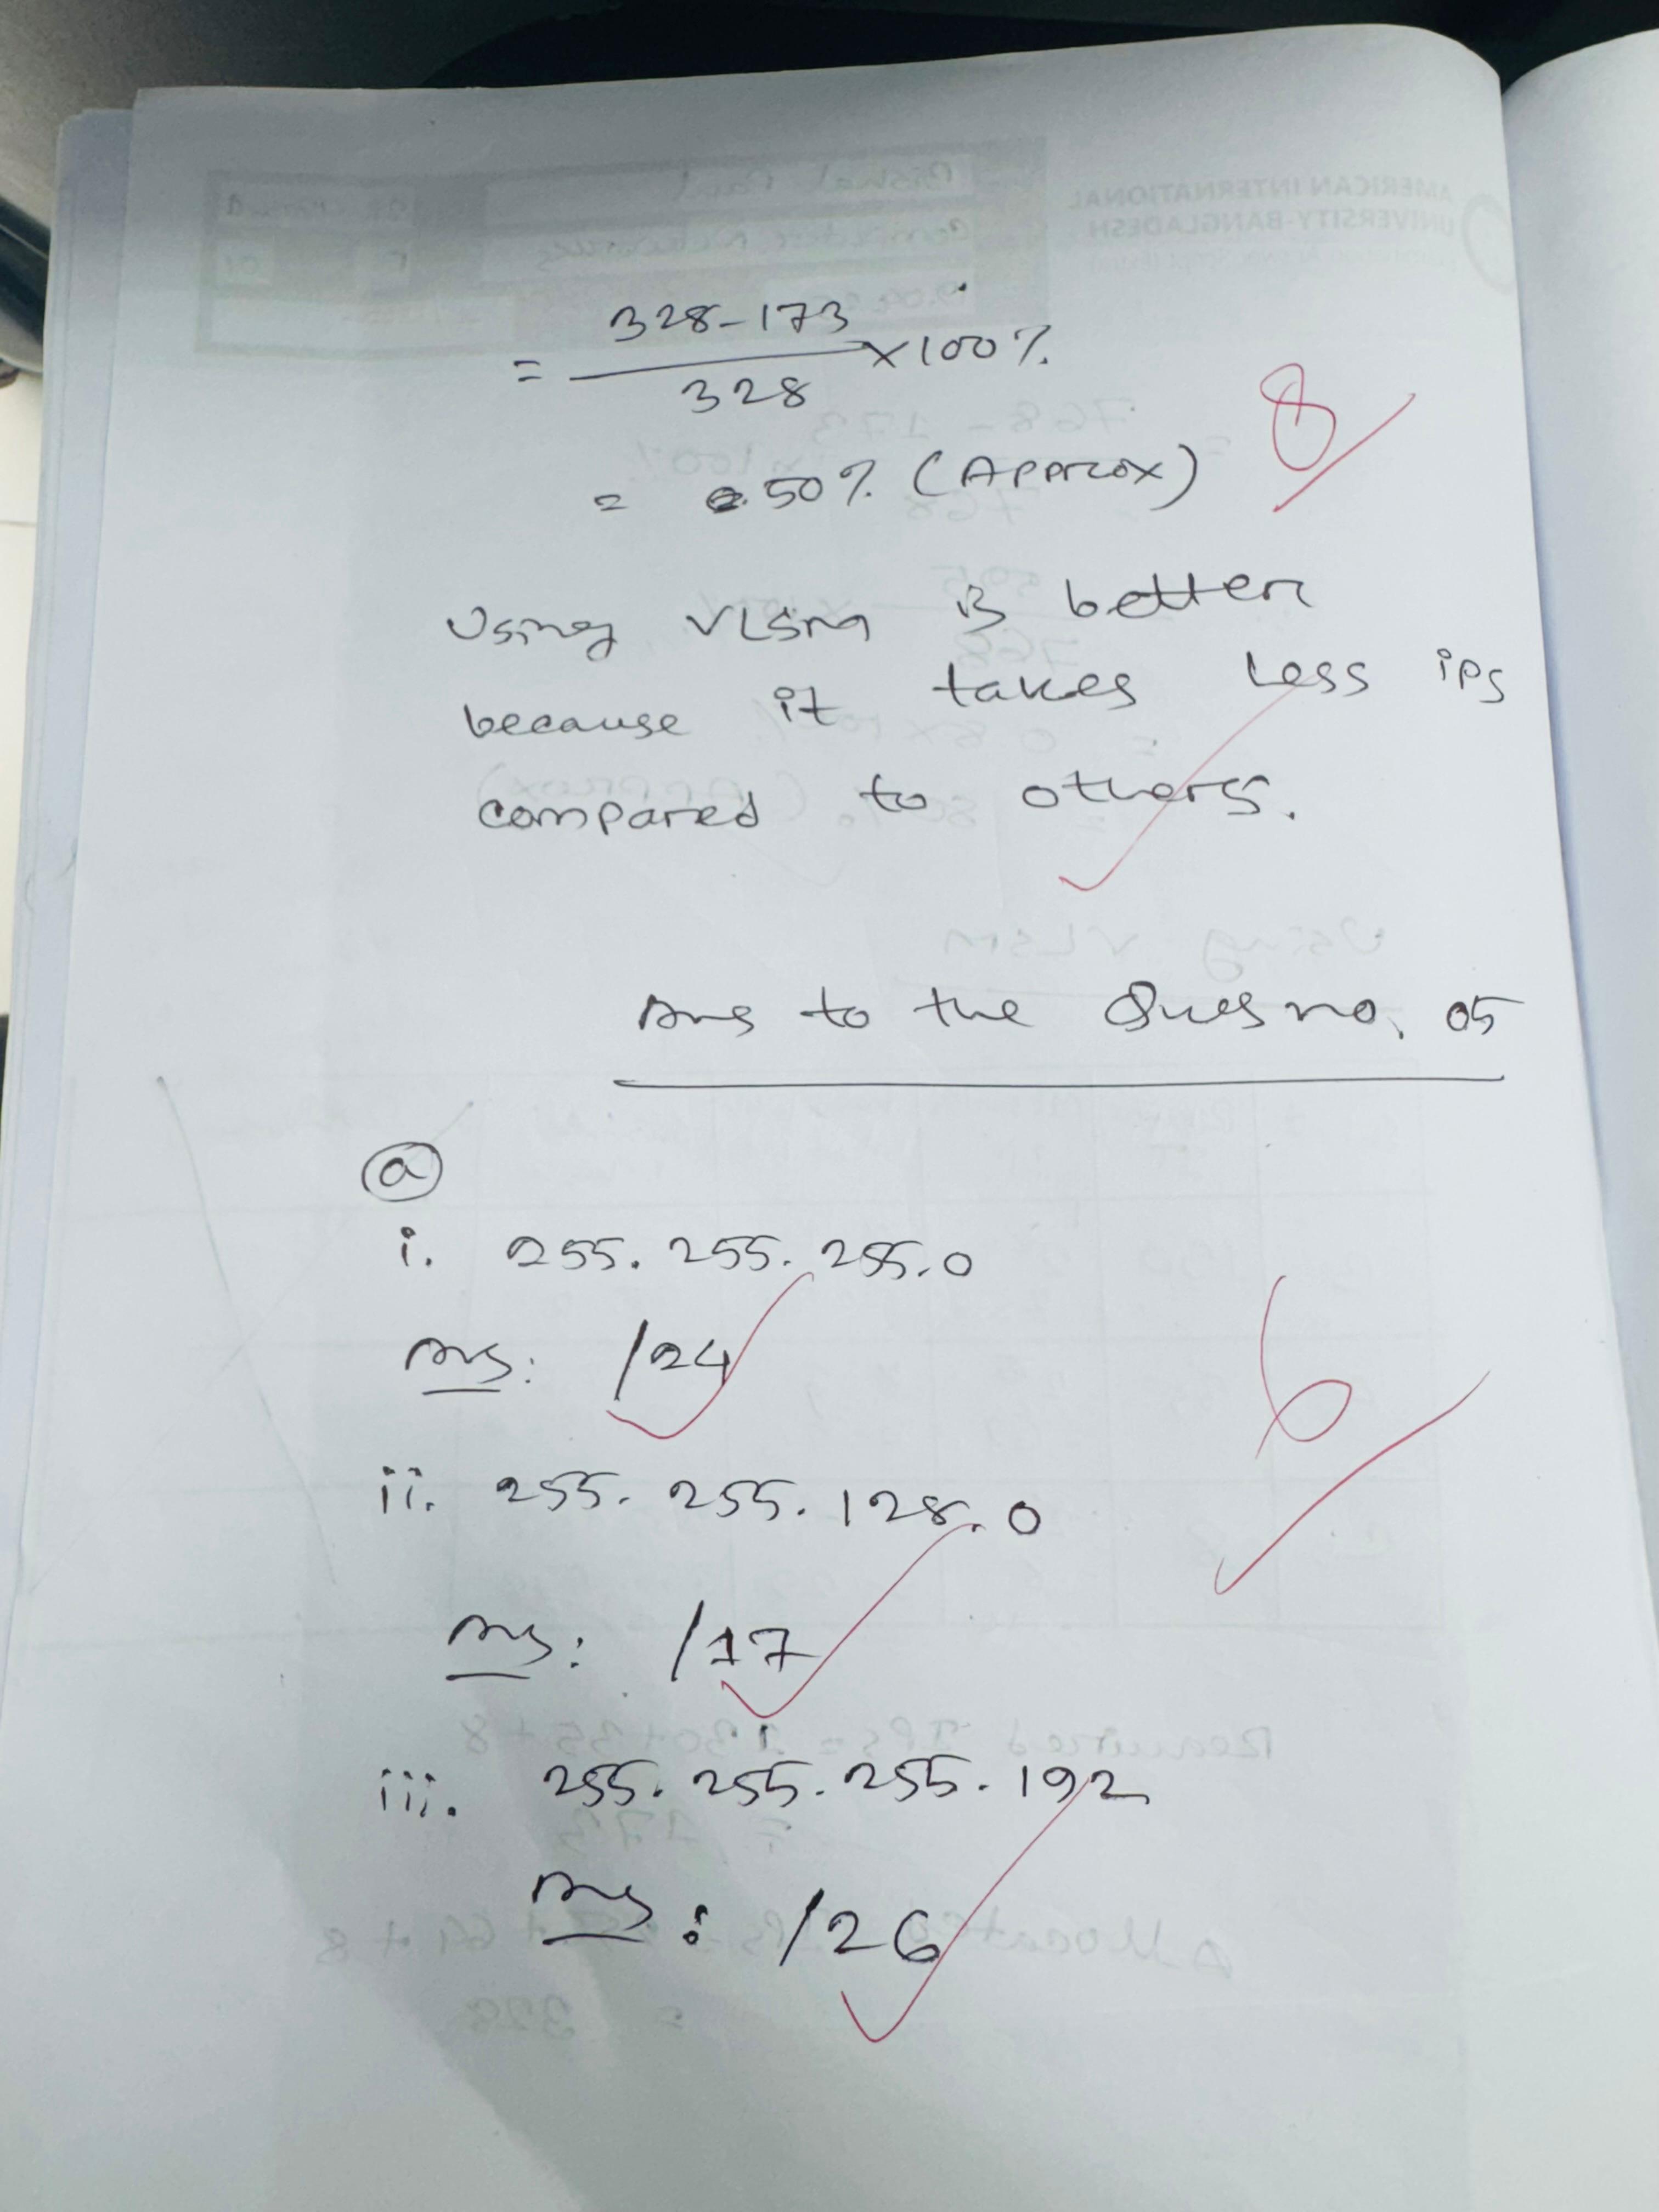 = 328-173 / 328 ×100%
= 50% (Approx)
8
Using VLSM is better
because it takes Less ips
compared to others.
Ans to the Ques no. 05
a
i. 255. 255. 255.0
Ans: /24
6
ii. 255. 255. 128. 0
Ans: /17
iii. 255. 255. 255. 192
Ans: /26